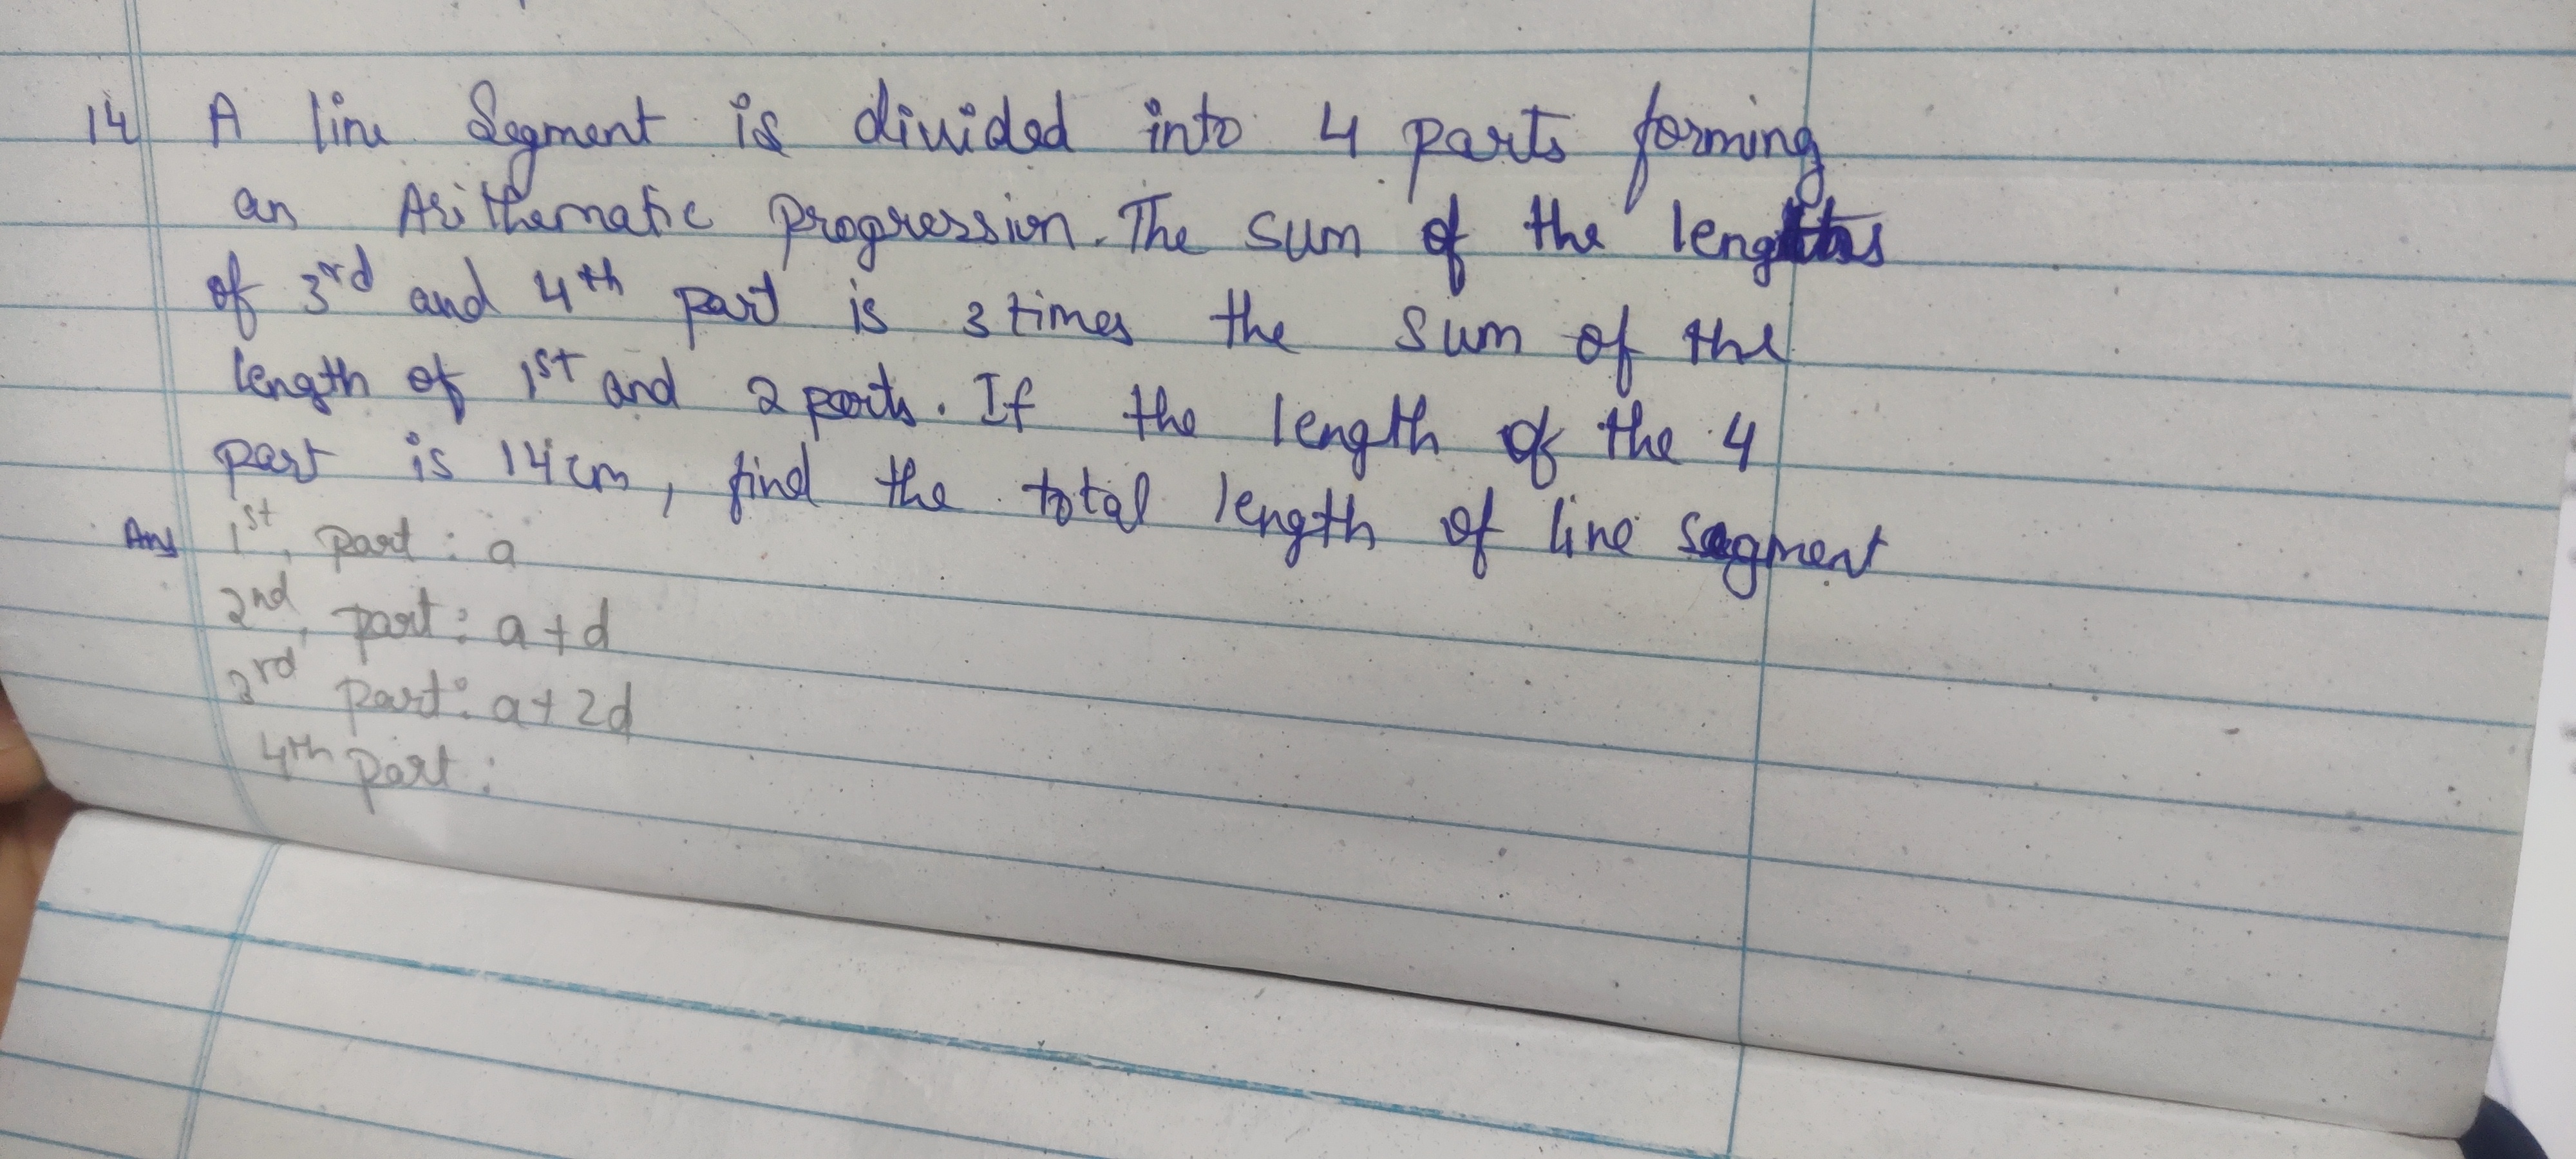 14 A line Segment is divided into 4 parts forming
an Arithematic progression. The sum of the lengths
of 3rd and 4th part is 3 times the sum of the
length of 1st and 2 parts. If the length of the 4
part is 14 cm, find the total length of line segment
Ans 1st, part : a
2nd, part : a + d
3rd part : a + 2d
4th part :